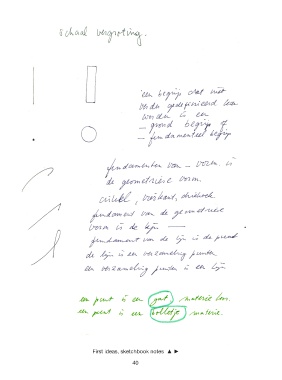 schaal vergroting.
een begrip dat niet
verder gedefinieerd kan
worden is een
— grond begrip of
— fundamenteel begrip
fundamenten van – vorm is
de geometriese vorm
cirkel, vierkant, driehoek
fundament van de geometriese
vorm is de lijn —
fundament van de lijn is de punt
de lijn is een verzameling punten
een verzameling punten is een lijn
een punt is een gat materie loos.
een punt is een bolletje materie.
First ideas, sketchbook notes ▲ ►
40